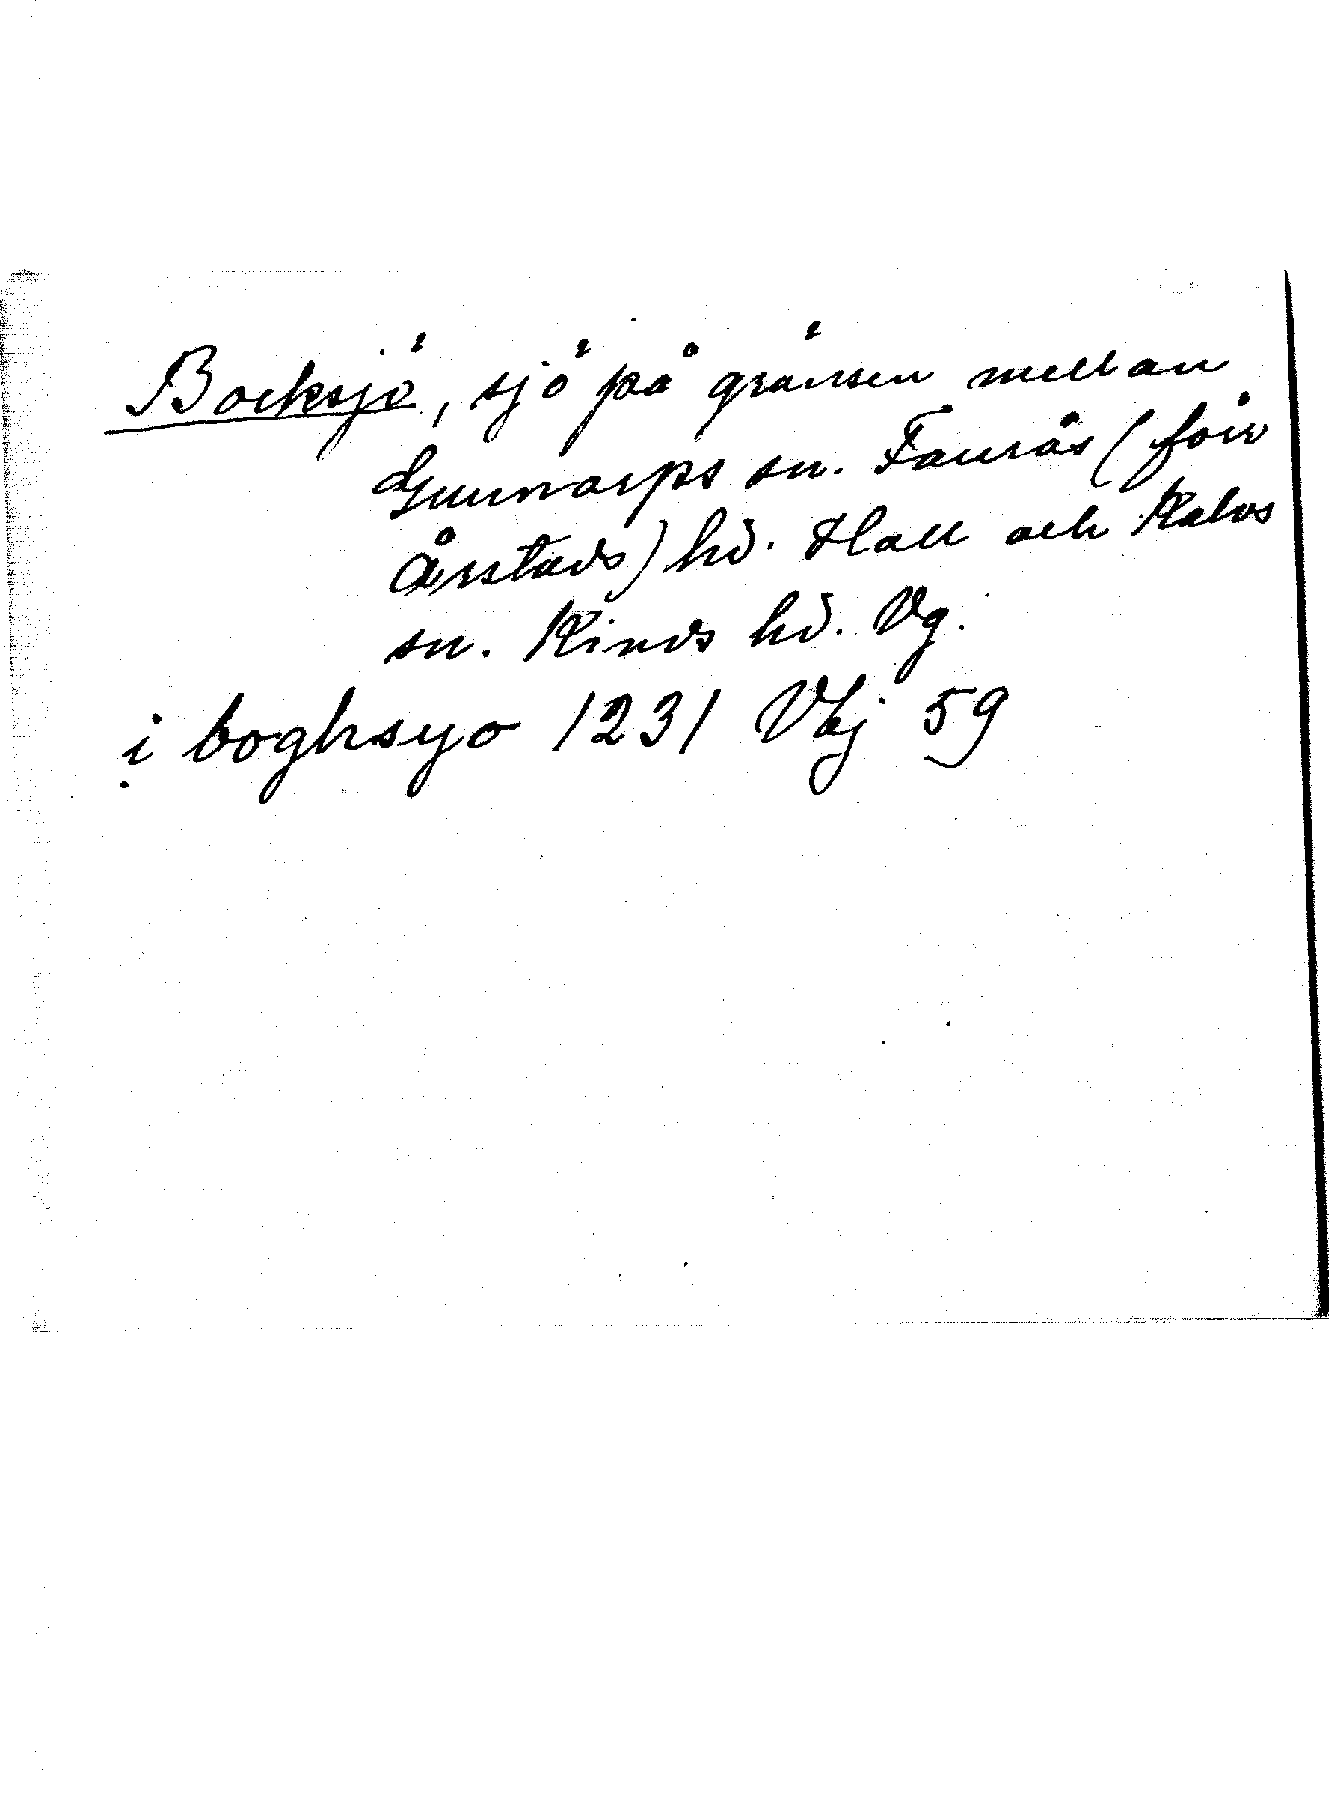 Bocksjö, sjö på gränsen mellan
Gunnarps sn. Faurås (förr
Årstads) hd. Hall och Kalvs
sn. Kinds hd. Vg.
i boghsyo 1231 Vkj 59